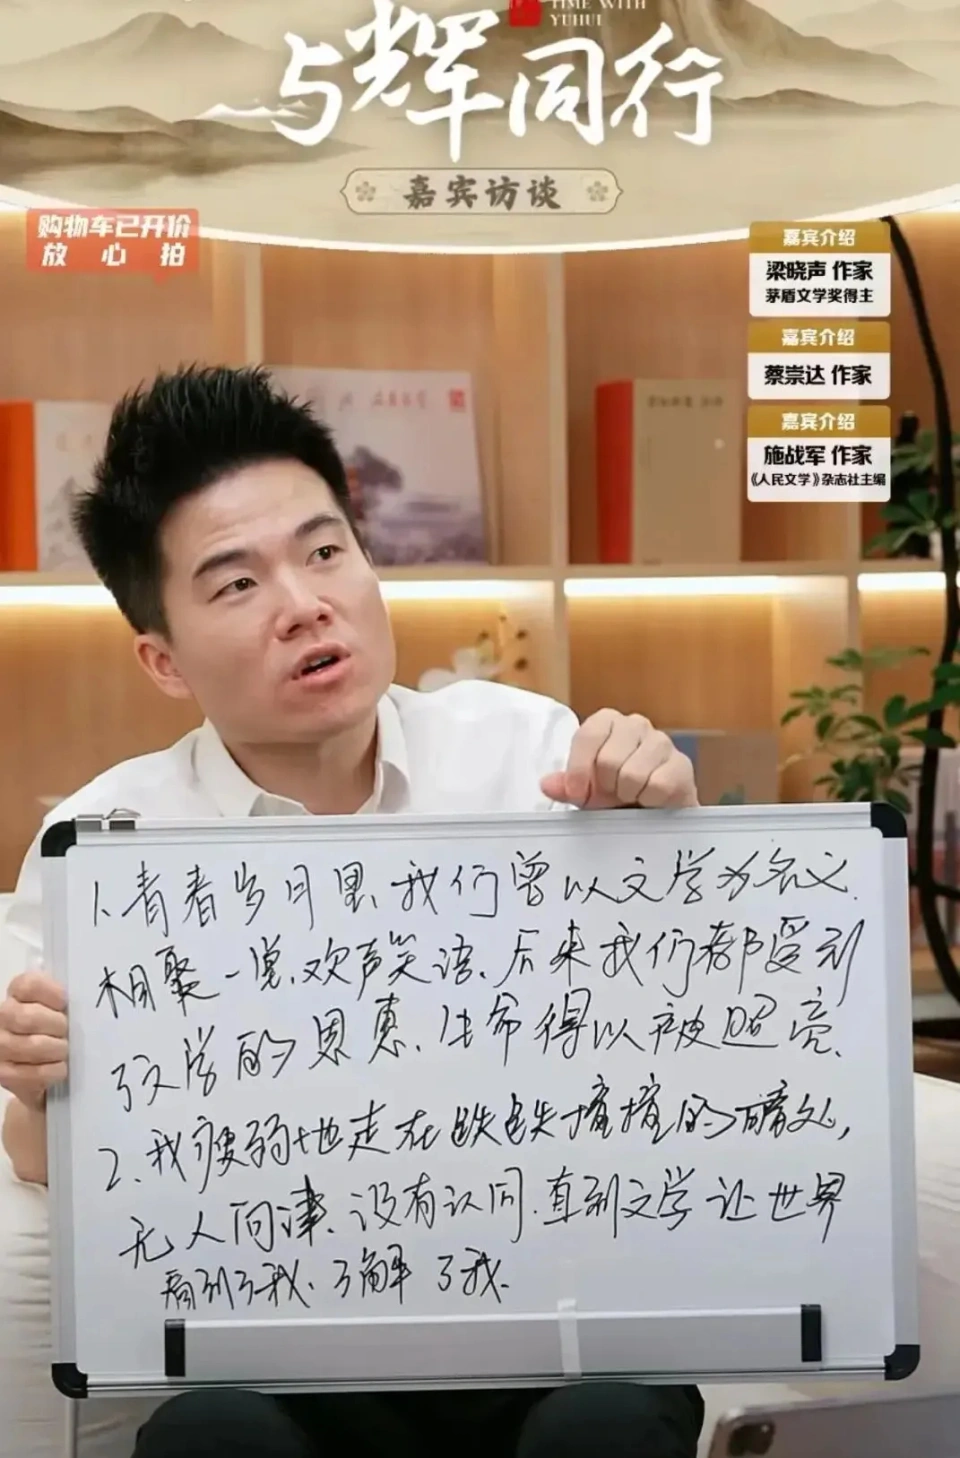 TIME WITH
YUHUI
与辉同行
嘉宾访谈
购物车已开价
放心拍
嘉宾介绍
梁晓声 作家
茅盾文学奖得主
嘉宾介绍
蔡崇达 作家
嘉宾介绍
施战军 作家
《人民文学》杂志社主编
1.青春岁月里,我们曾以文学为名义.
相聚一堂,欢声笑语、后来我们都受到
了文学的恩惠.生命得以被照亮.
2.我瘦弱地走在跌跌撞撞的暗处,
无人问津、没有认同.直到文学让世界
看到了我、了解了我.